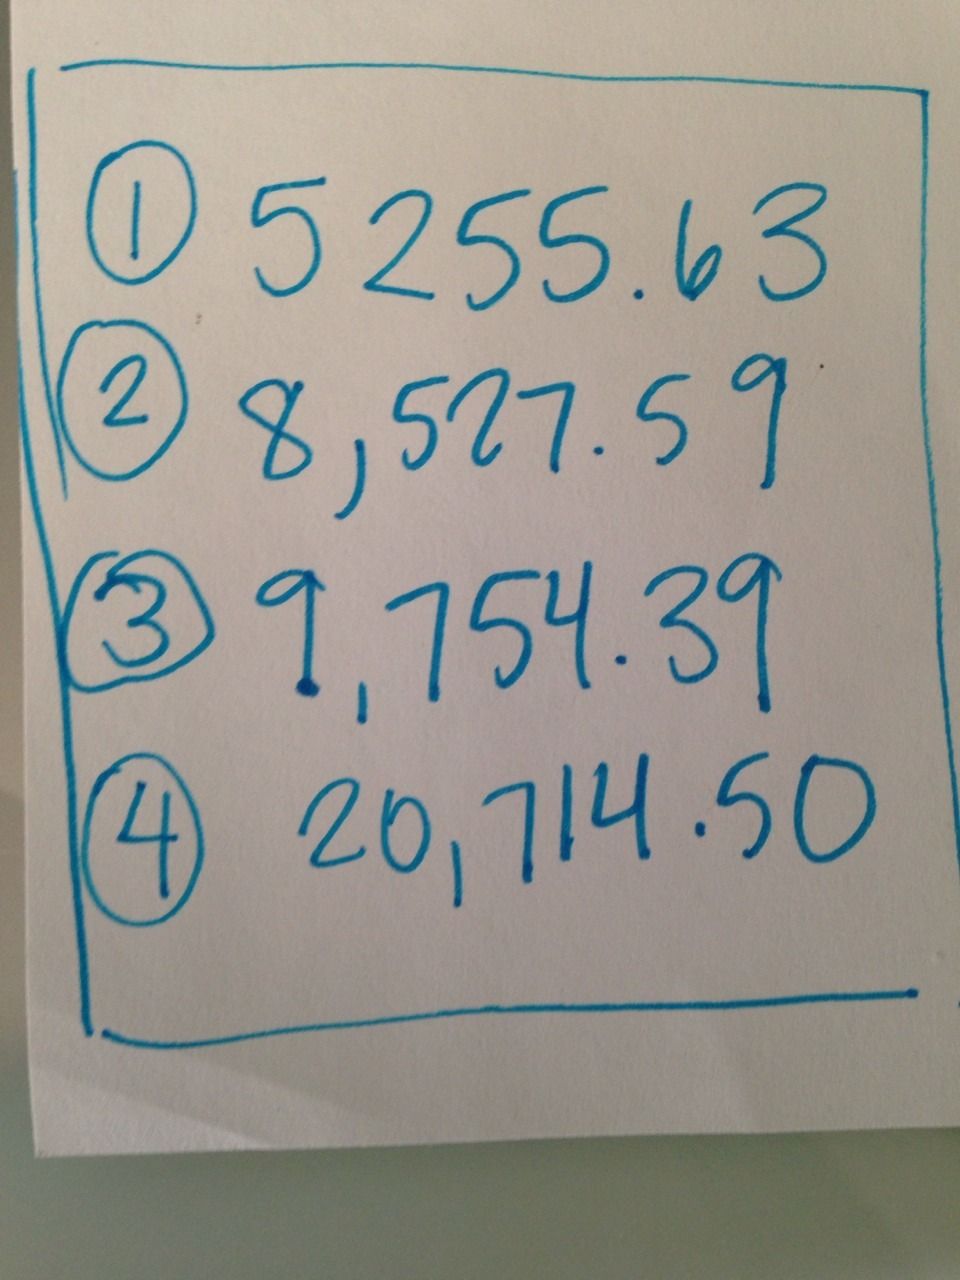 1 5255.63
2 8,527.59
3 9,754.39
4 20,714.50